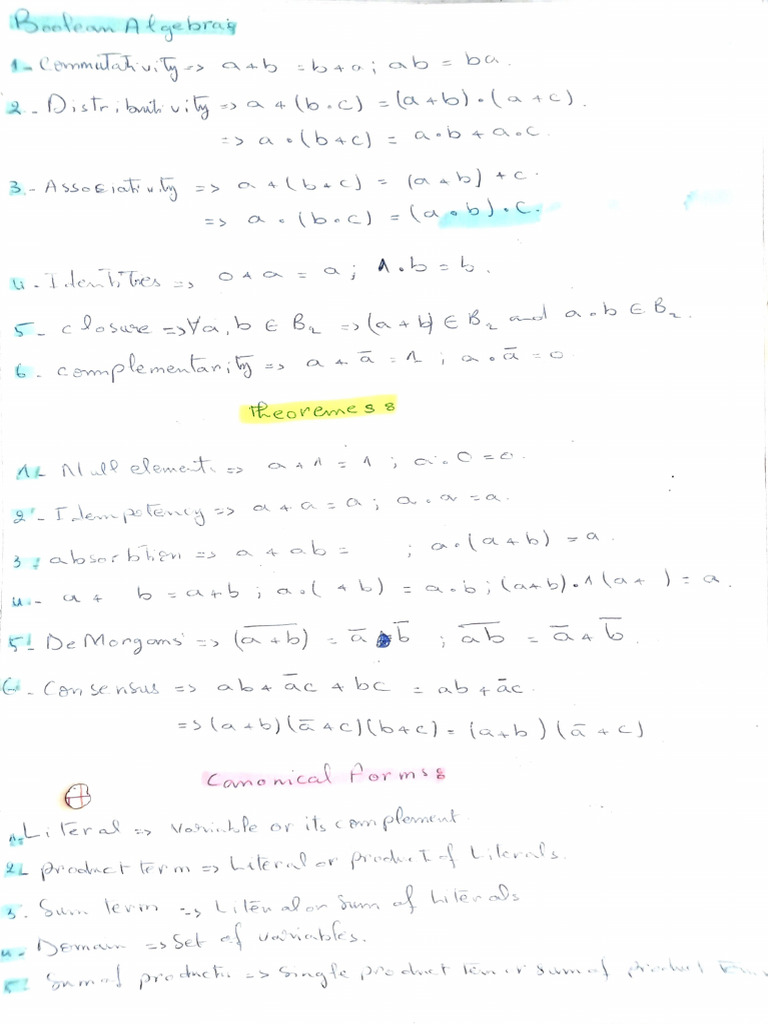 Boolean Algebra:
1- Commutativity => a+b = b+a ; ab = ba.
2. Distributivity => a + (b.c) = (a+b) . (a+c).
=> a . (b+c) = a.b + a.c.
3.- Associativity => a + (b+c) = (a+b) + c.
=> a . (b.c) = (a.b).c.
4. Identities => 0+a = a ; 1.b = b.
5- closure => ∀a,b ∈ B₂ => (a+b) ∈ B₂ and a.b ∈ B₂.
6. complementarity => a + ā = 1 ; a . ā = 0
Theoremes:
1- Null element. => a+1 = 1 ; a.0 = 0.
2- Idempotency => a+a = a ; a.a = a.
3. absorbtion => a + ab = ; a.(a+b) = a.
4.- a + b = a+b ; a.( +b) = a.b ; (a+b).1(a+ ) = a.
5- DeMorgans' => (a̅+̅b̅) = ā . b̅ ; a̅b̅ = ā + b̅.
6- Consensus => ab + āc + bc = ab + āc.
=> (a+b)(ā+c)(b+c) = (a+b)(ā+c)
Canonical forms:
1. Literal => variable or its complement.
2- product term => Literal or product of Literals.
3. Sum term => Literal or Sum of Literals
4. Domain => Set of variables.
5. Sum of products => Single product term or sum of product